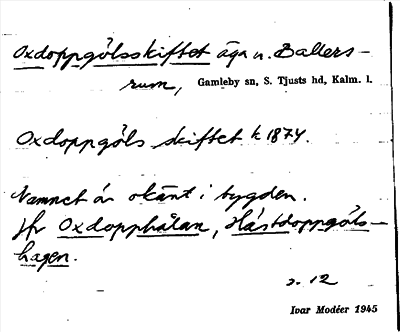 Oxdoppgölsskiftet äga u. Ballers-
rum, Gamleby sn, S. Tjusts hd, Kalm. l.
Oxdoppgöls skiftet k 1874.
Namnet är okänt i bygden.
Jfr Oxdopphålan, Hästdoppgöls-
hagen.
s. 12
Ivar Modéer 1945